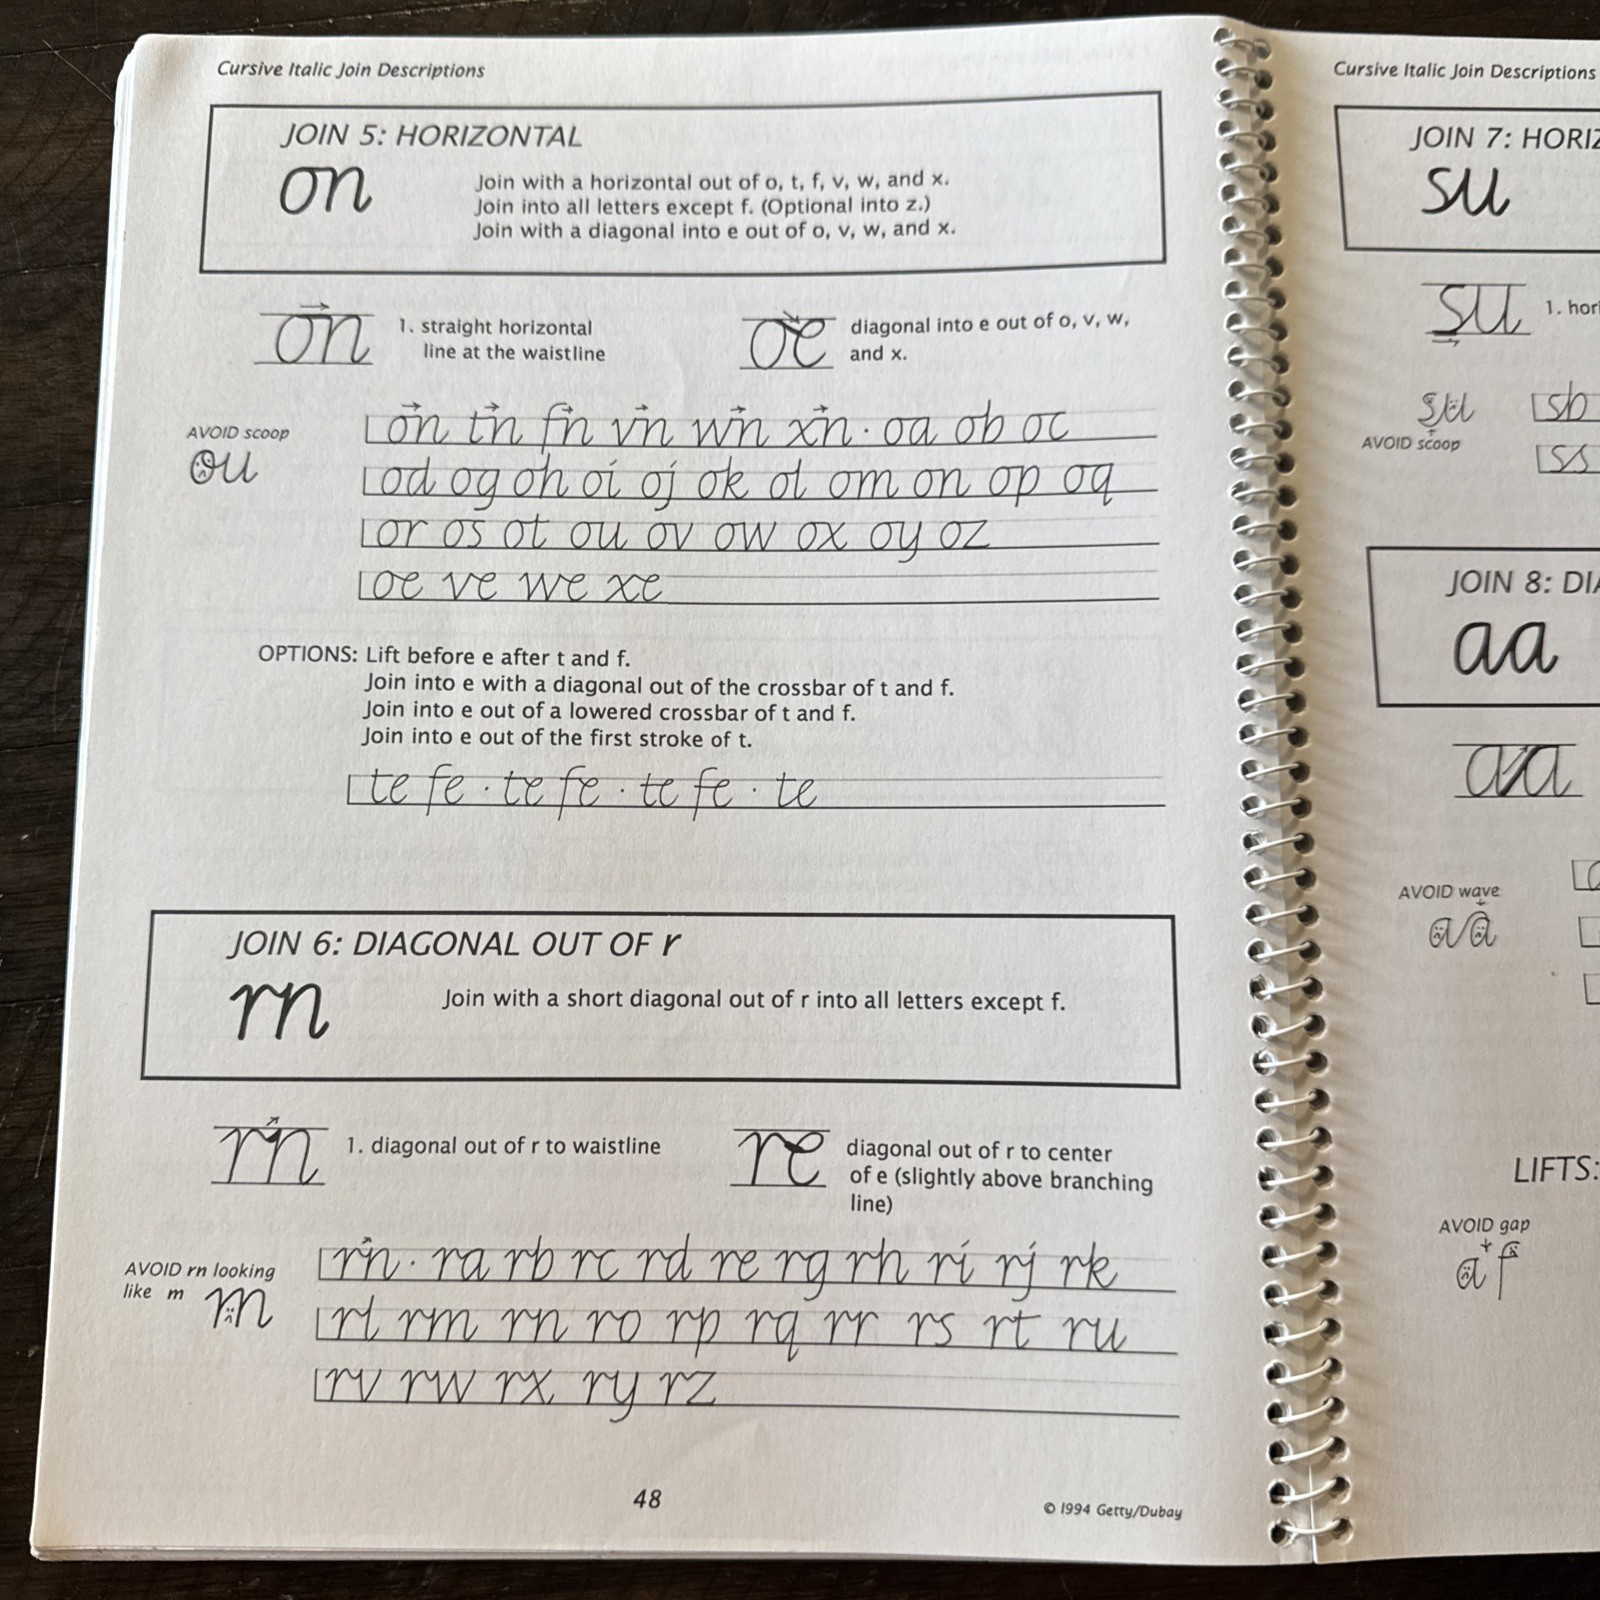 Cursive Italic Join Descriptions
JOIN 5: HORIZONTAL
on
Join with a horizontal out of o, t, f, v, w, and x.
Join into all letters except f. (Optional into z.)
Join with a diagonal into e out of o, v, w, and x.
on
1. straight horizontal
line at the waistline
oe
diagonal into e out of o, v, w,
and x.
AVOID scoop
ou
on tn fn vn wn xn · oa ob oc
od og oh oi oj ok ol om on op oq
or os ot ou ov ow ox oy oz
oe ve we xe
OPTIONS: Lift before e after t and f.
Join into e with a diagonal out of the crossbar of t and f.
Join into e out of a lowered crossbar of t and f.
Join into e out of the first stroke of t.
te fe · te fe · te fe · te
JOIN 6: DIAGONAL OUT OF r
rn
Join with a short diagonal out of r into all letters except f.
rn
1. diagonal out of r to waistline
re
diagonal out of r to center
of e (slightly above branching
line)
AVOID rn looking
like m
rn · ra rb rc rd re rg rh ri rj rk
rl rm rn ro rp rq rr rs rt ru
rv rw rx ry rz
48
© 1994 Getty/Dubay
Cursive Italic Join Descriptions
JOIN 7: HORIZ
su
su
1. hori
su
AVOID scoop
sb
ss
JOIN 8: DIA
aa
aa
AVOID wave
aa
LIFTS:
AVOID gap
af